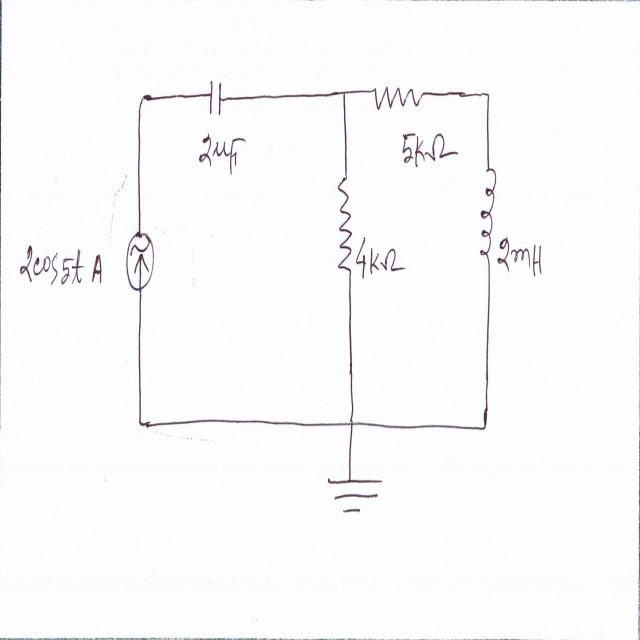 2μF
5kΩ
2cos5t A
4kΩ
2mH